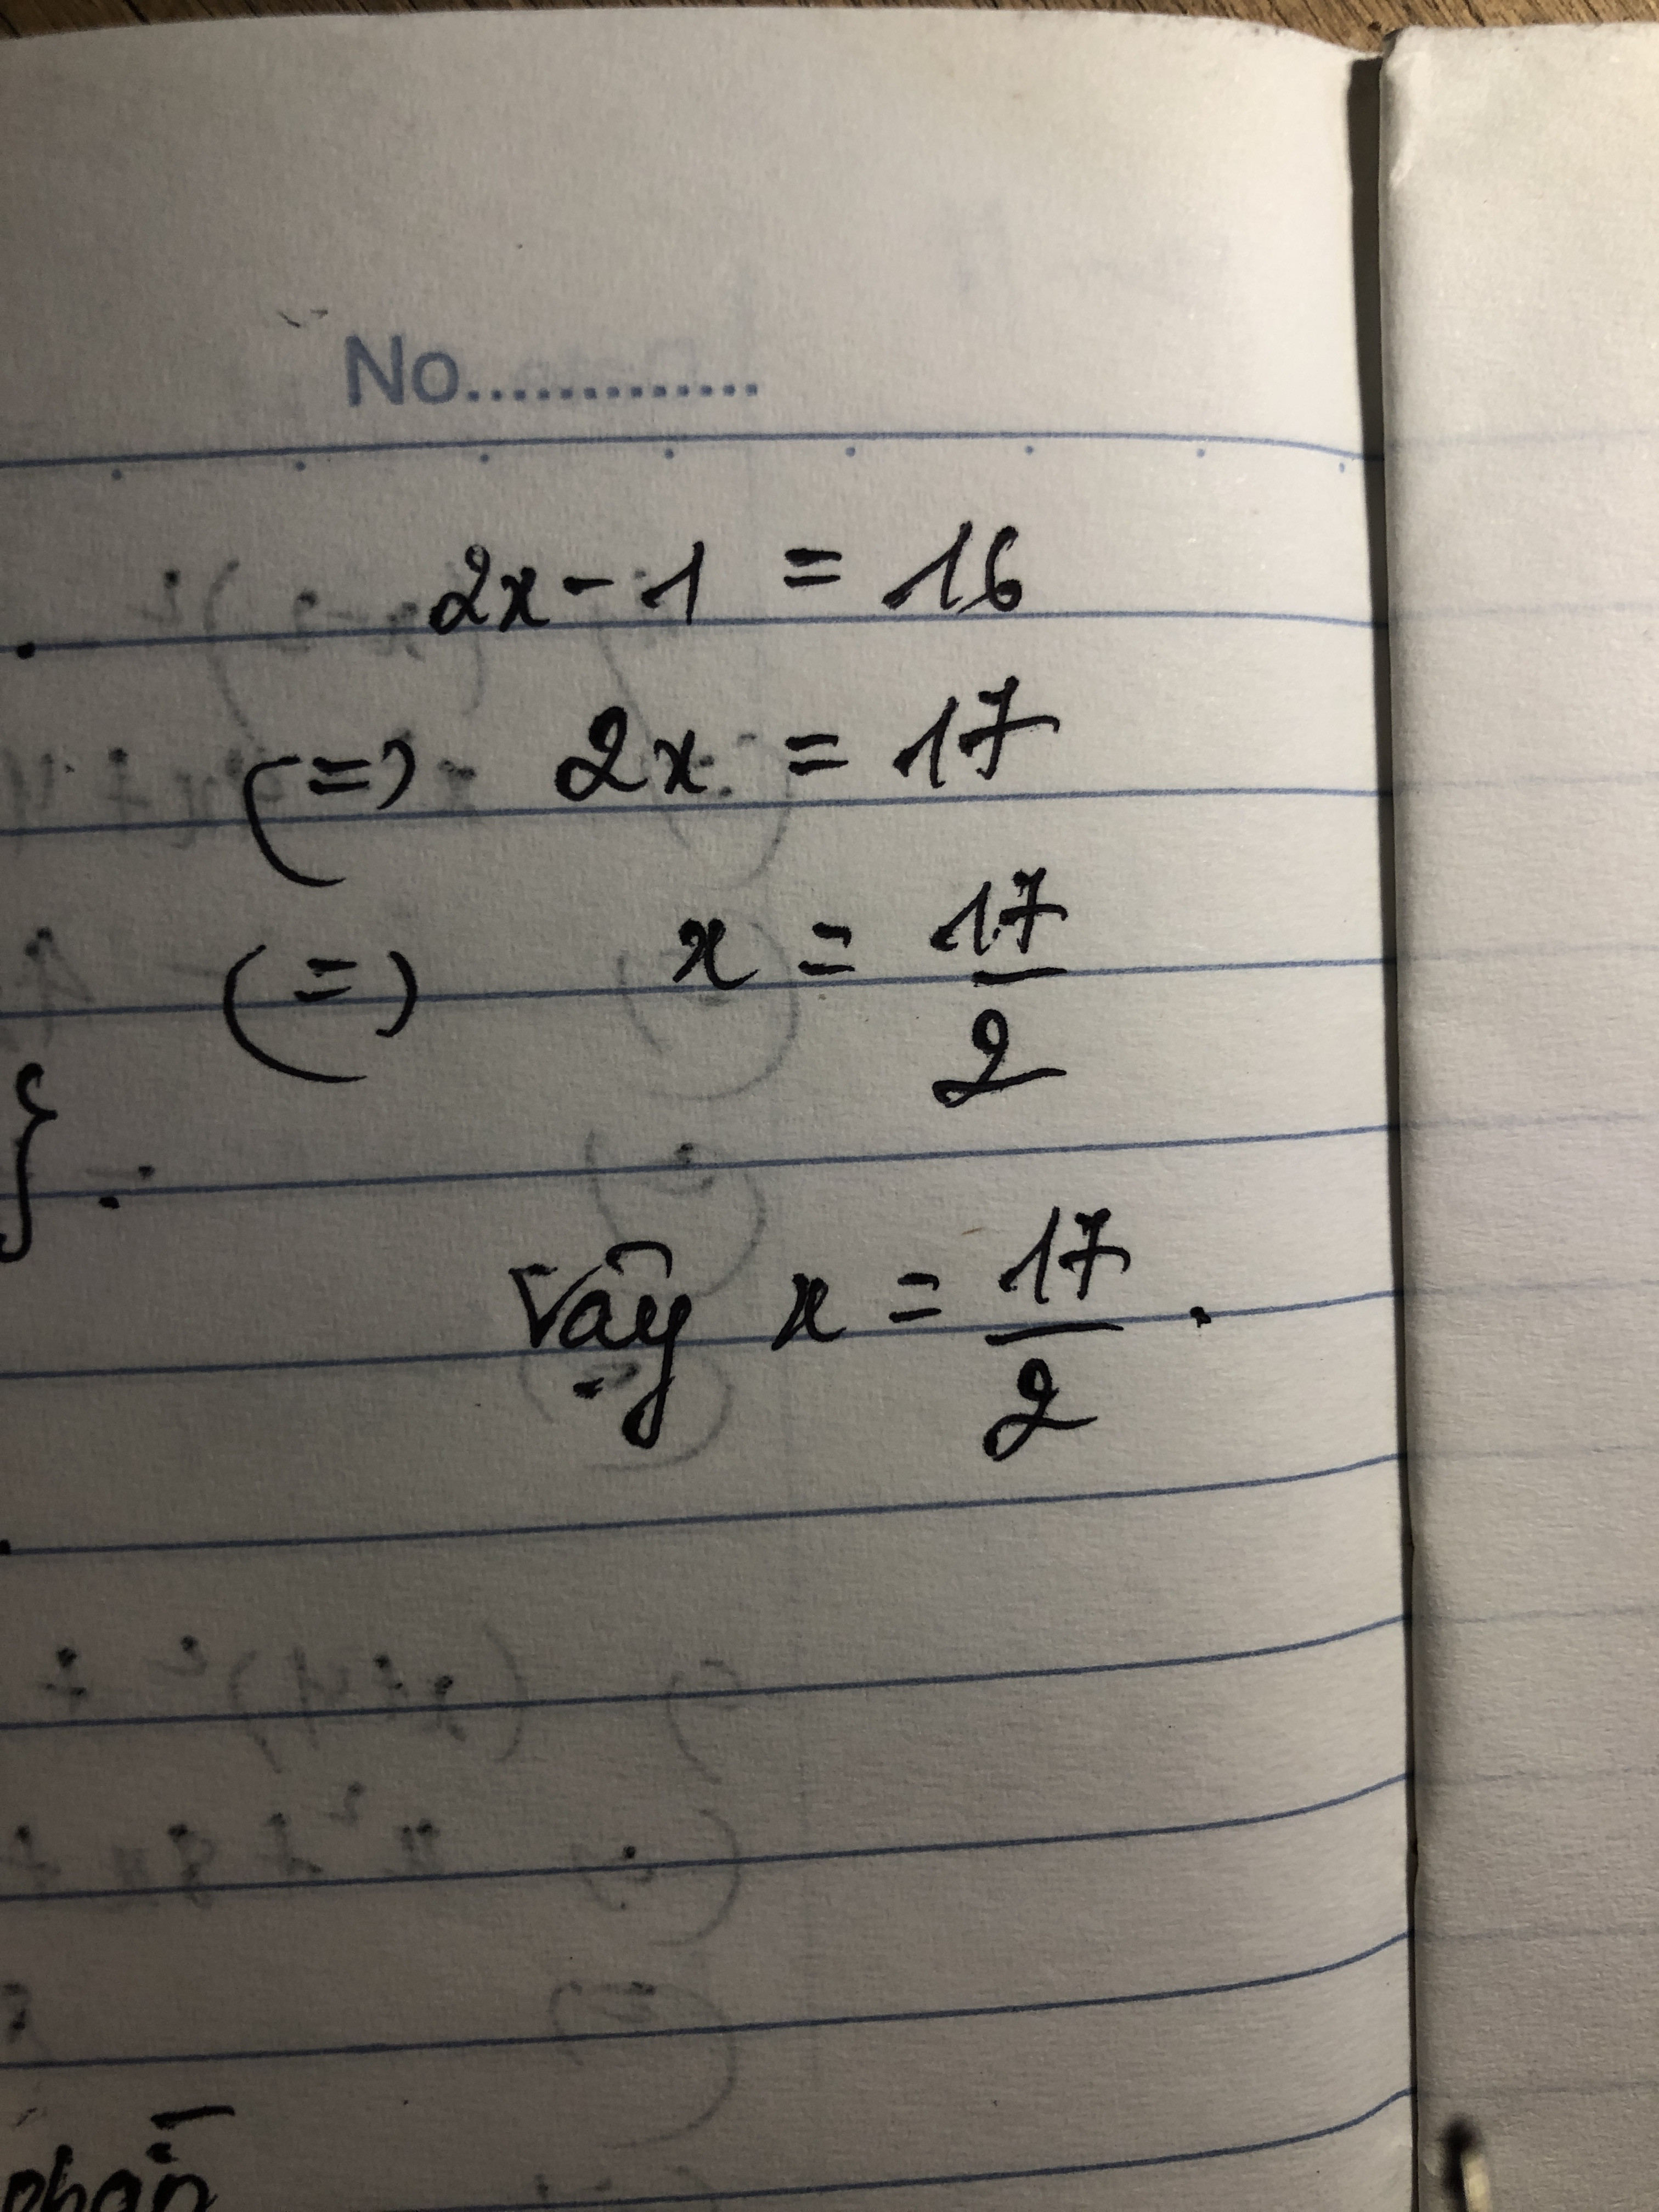 No.............
2x - 1 = 16
(=) 2x = 17
(=) x = 17/2
} .
Vậy x = 17/2 .